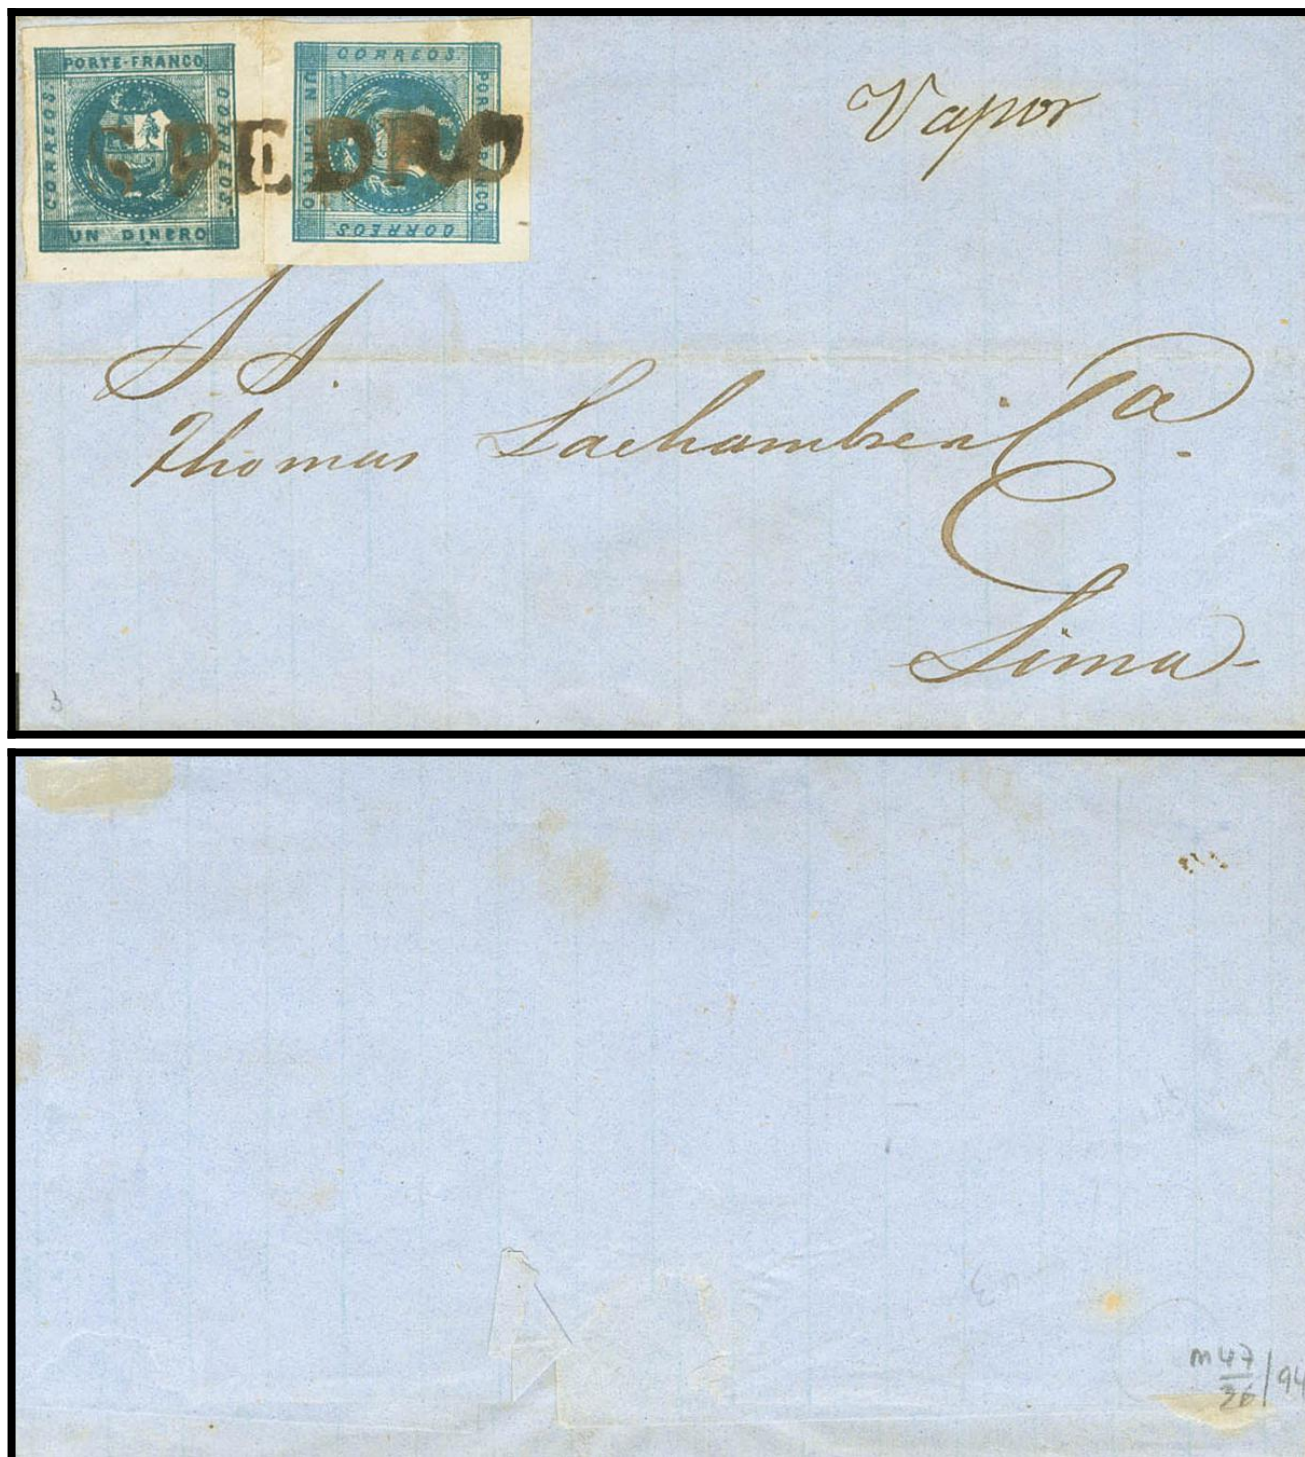 PORTE-FRANCO
CORREOS.
CORREOS.
UN DINERO
CORREOS.
UN DINERO
PORTE FRANCO
CORREOS
S PEDRO
Vapor
S. S.
Thomas Lachambre i Ca.
Lima
m 47
36 / 94